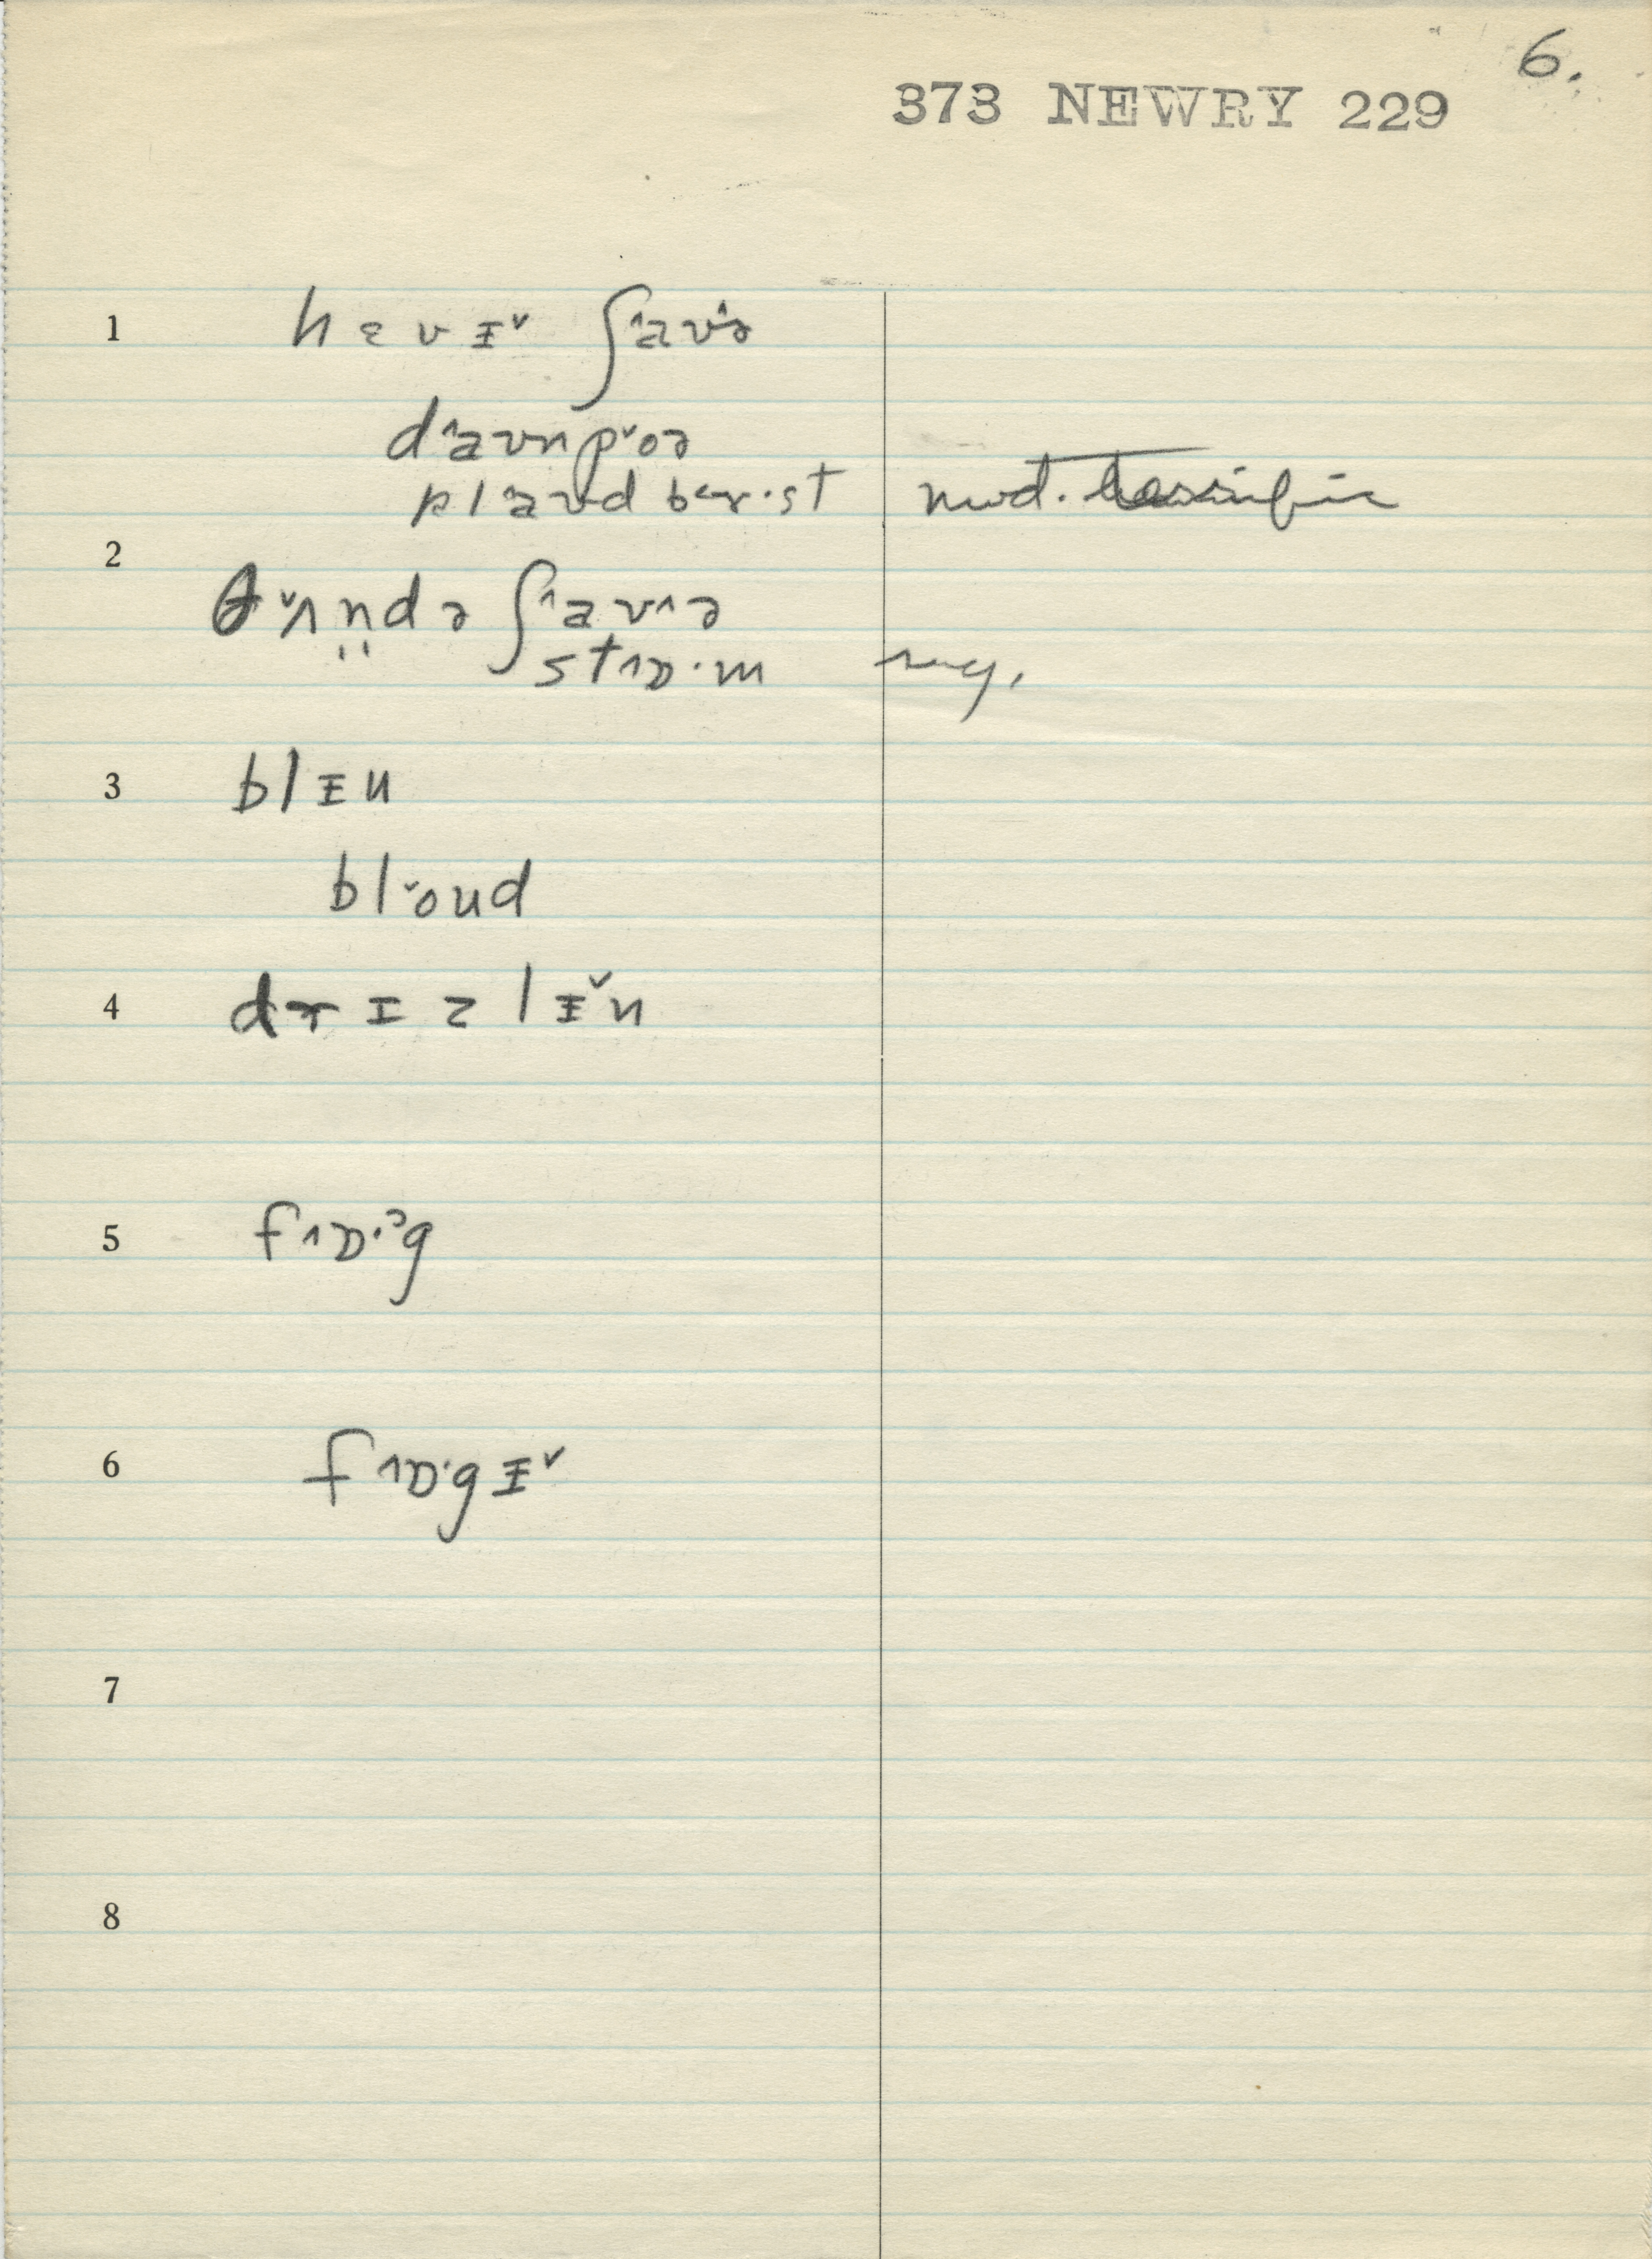 6.
373 NEWRY 229
1 hɛvɪ˅ ʃ˄aʊ˄ə
d˄aʊnp˅oə
pl˄aʊd bɜr·st mod.
2 θ˅ʌn̤də ʃ˄aʊ˄ə
st˄ɒ·m
3 blɪu
bl˅oud
4 drɪzlɪ˅n
5 f˄ɒ·ᵊg
6 f˄ɒ·gɪ˅
7
8